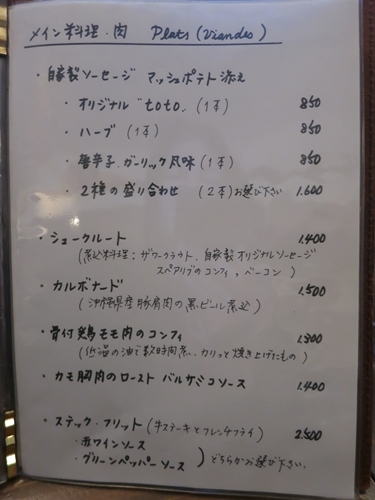 メイン料理・肉 Plats (Viandes)
・自家製ソーセージ マッシュポテト添え
・オリジナル "toto" (1本) 850
・ハーブ (1本) 850
・唐辛子.ガーリック風味 (1本) 850
・2種の盛り合わせ (2本)お選び下さい 1.600
・シュークルート 1.400
(煮込料理:ザワークラウト.自家製オリジナルソーセージ
スペアリブのコンフィ,ベーコン)
・カルボナード 1,500
(沖縄県産豚肩肉の黒ビール煮込)
・骨付鶏モモ肉のコンフィ 1.300
(低温の油で数時間煮.カリッと焼き上げたもの)
・カモ胸肉のロースト バルサミコソース 1.400
・ステック・フリット (牛ステーキとフレンチフライ) 2.500
・赤ワインソース
・グリーンペッパーソース ) どちらかお選び下さい.